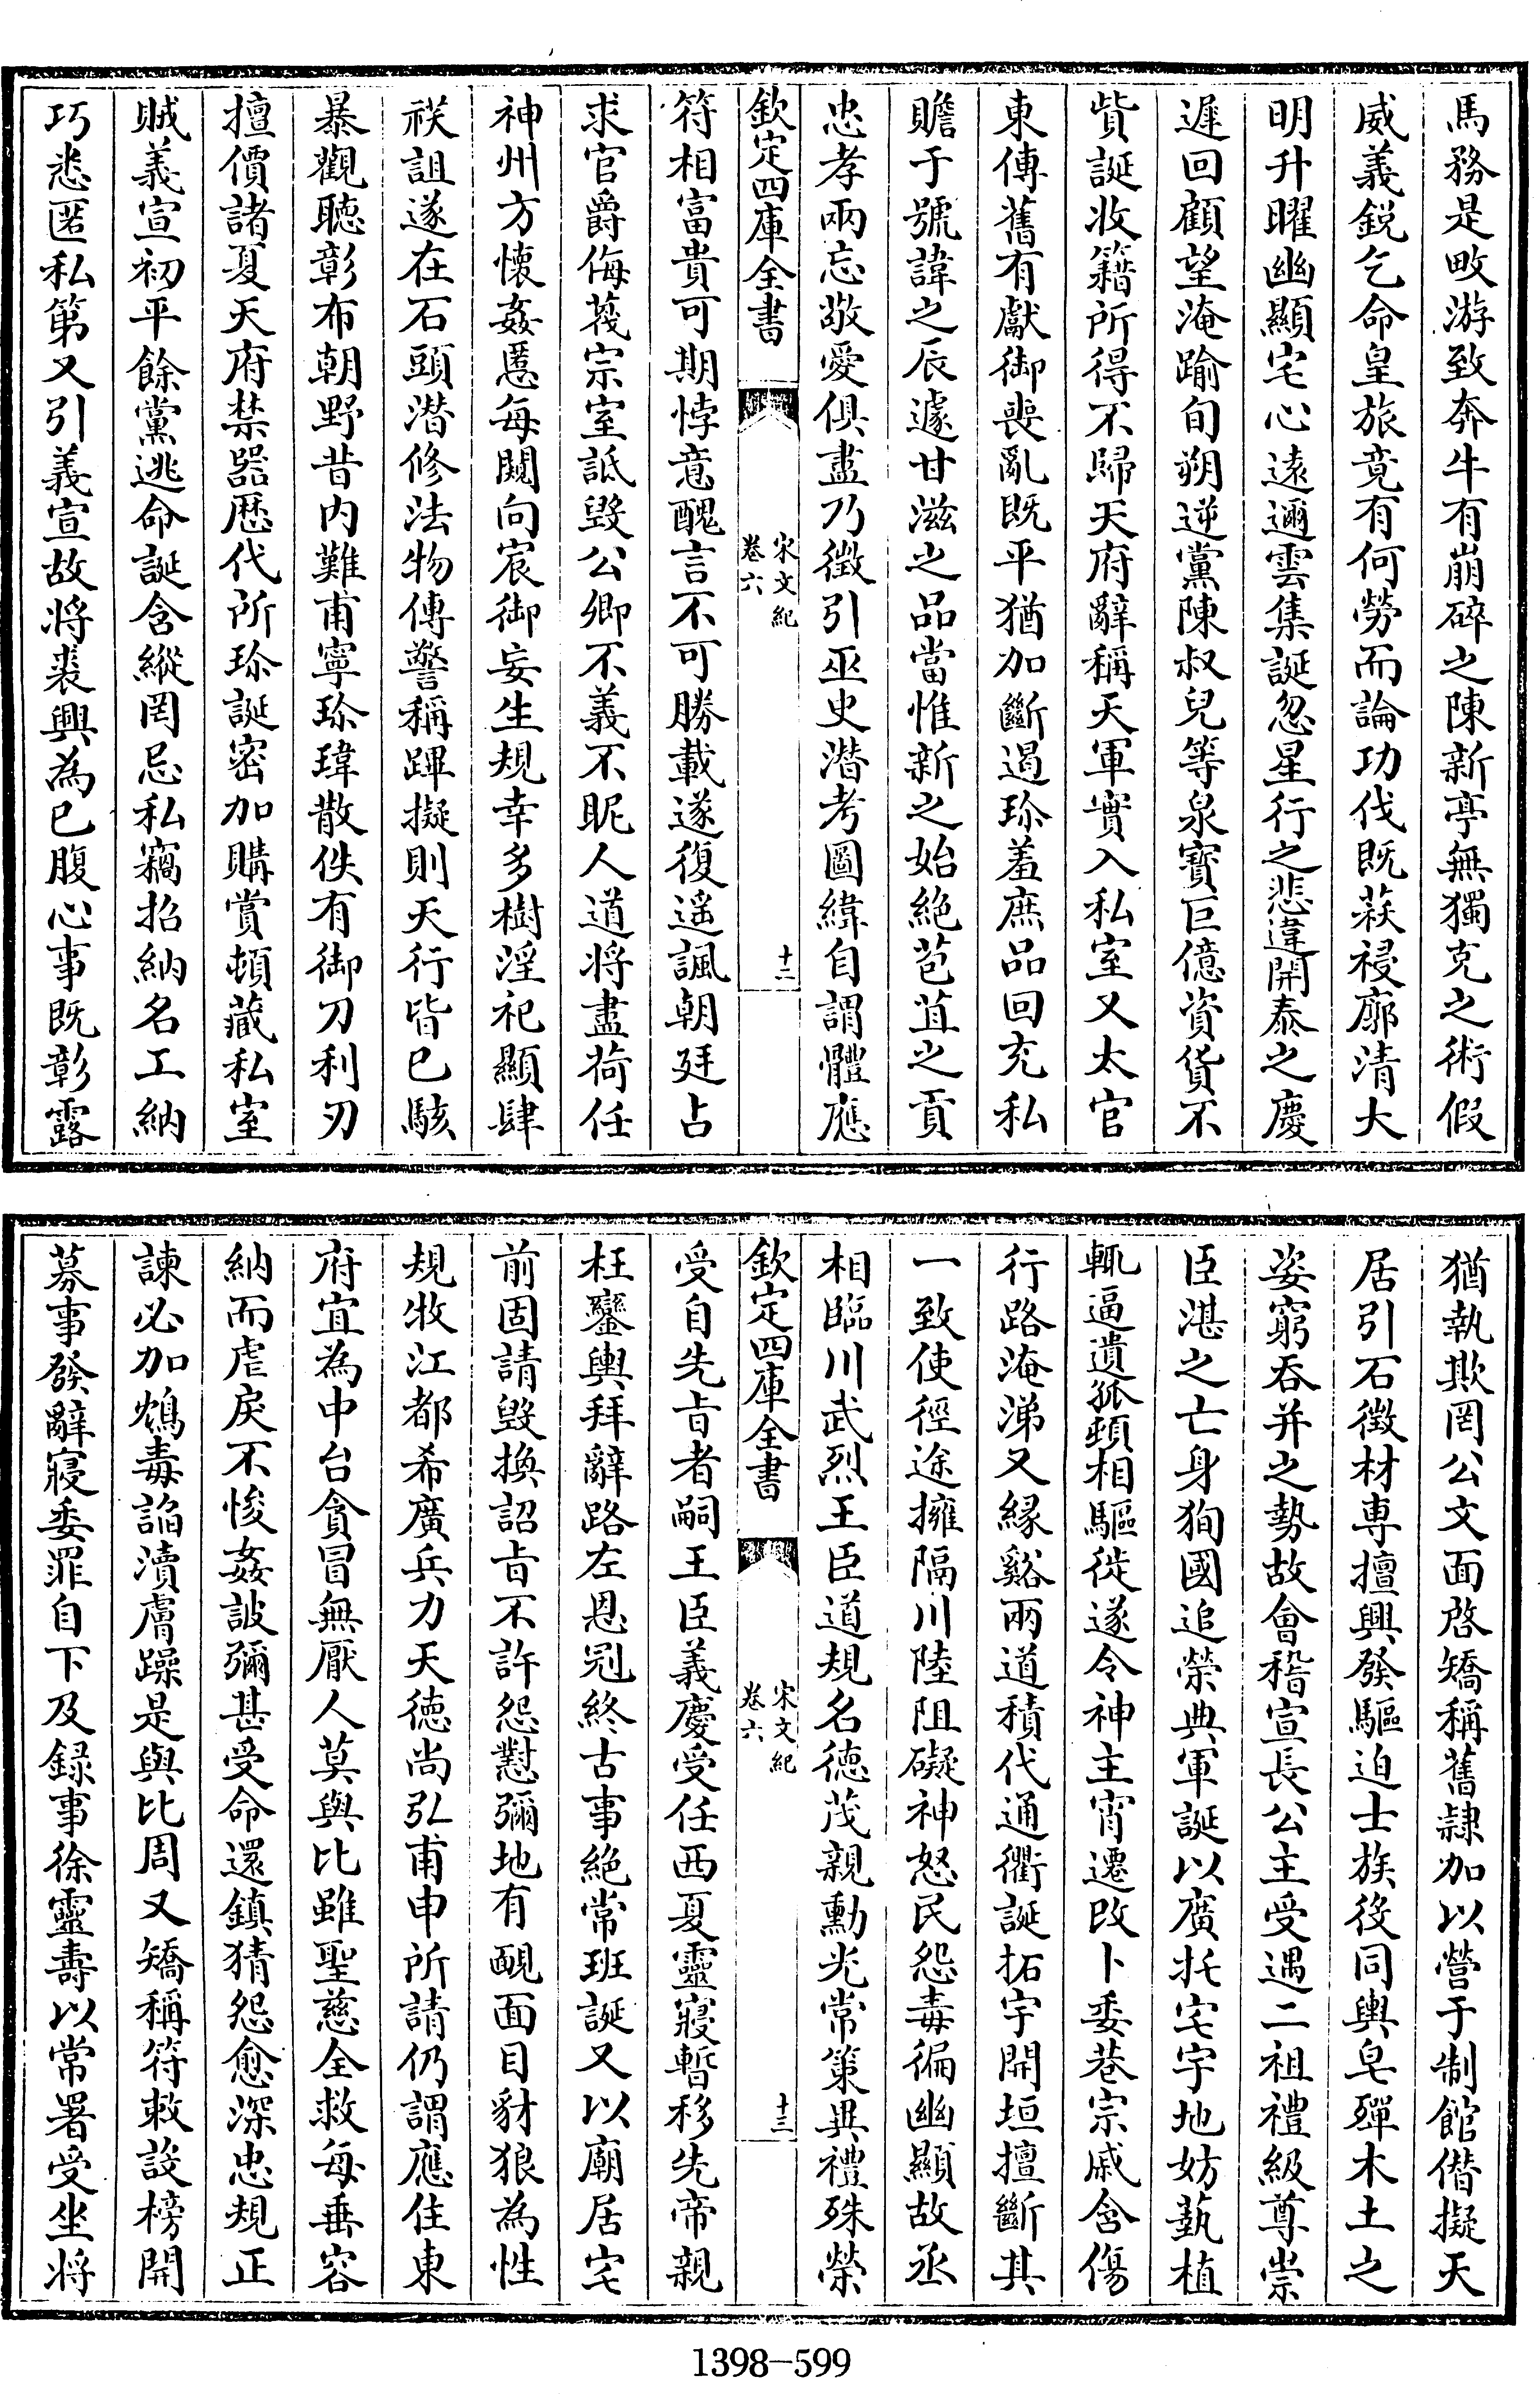 馬務是畋游致奔牛有崩碎之陳新亭無獨克之術假
威義鋭乞命皇旅竟有何勞而論功伐既蒙祲廓清大
明升曜幽顯宅心遠邇雲集誕忽星行之悲違開泰之慶
遲回顧望淹踰旬朔逆黨陳叔兒等泉寳巨億資貨不
貲誕收籍所得不歸天府辭稱天軍實入私室又太官
東傳舊有獻御喪亂既平猶加斷遏珍羞庶品回充私
贍于號諱之辰遽甘滋之品當惟新之始絶苞苴之貢
忠孝兩忘敬愛俱盡乃徵引巫史潜考圖緯自謂體應
欽定四庫全書
宋文紀
卷六
十二
符相富貴可期悖意醜言不可勝載遂復遥諷朝廷占
求官爵侮蔑宗室詆毁公卿不義不眤人道將盡荷任
神州方懐姦慝每闚向宸御妄生規幸多樹淫祀顯肆
祅詛遂在石頭潜修法物傳警稱蹕擬則天行皆已駭
暴觀聽彰布朝野昔内難甫寧珍瑋散佚有御刀利刃
擅價諸夏天府禁器歷代所珍誕密加購賞頓藏私室
賊義宣初平餘黨逃命誕含縱罔忌私竊招納名工納
巧悉匿私第又引義宣故將裘興為已腹心事既彰露
猶執欺罔公文面啓矯稱舊隷加以營于制館僣擬天
居引石徵材専擅興發驅迫士族役同輿皂殫木土之
姿窮呑并之勢故會稽宣長公主受遇二祖禮級尊崇
臣湛之亡身狥國追榮典軍誕以廣托宅宇地妨藝植
輒逼遺孤頓相驅徙遂令神主宵遷改卜委巷宗戚含傷
行路淹涕又縁谿兩道積代通衢誕拓宇開垣擅斷其
一致使徑途擁隔川陸阻礙神怒民怨毒徧幽顯故丞
相臨川武烈王臣道規名德茂親勳光常策異禮殊榮
欽定四庫全書
宋文紀
卷六
十三
受自先㫖者嗣王臣義慶受任西夏靈寢暫移先帝親
枉鑾輿拜辭路左恩冠終古事絶常班誕又以廟居宅
前固請毁換詔㫖不許怨懟彌地有靦面目豺狼為性
規牧江都希廣兵力天德尚弘甫申所請仍謂應住東
府宜為中台貪冒無厭人莫與比雖聖慈全救每垂容
納而虐戾不悛姦詖彌甚受命還鎮猜怨愈深忠規正
諫必加鴆毒諂瀆膚躁是與比周又矯稱符敕設榜開
募事發辭寢委罪自下及録事徐靈壽以常署受坐將
1398-599